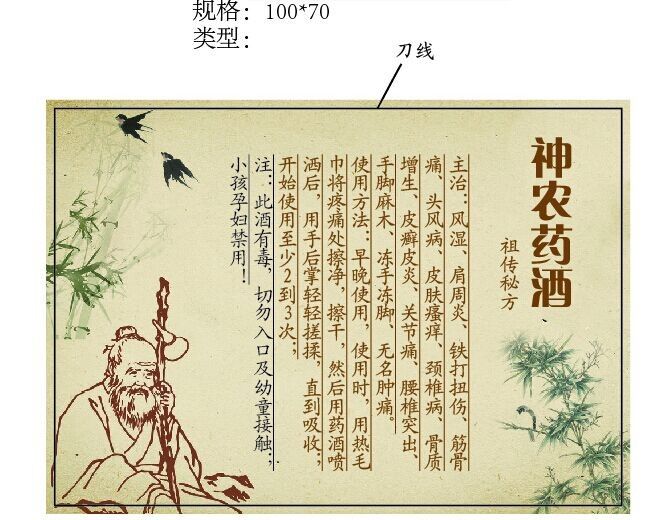 规格：100*70
类型：
刀线
神农药酒
祖传秘方
主治：风湿、肩周炎、铁打扭伤、筋骨
痛、头风病、皮肤瘙痒、颈椎病、骨质
增生、皮癣皮炎、关节痛、腰椎突出、
手脚麻木、冻手冻脚、无名肿痛。
使用方法：早晚使用，使用时，用热毛
巾将疼痛处擦净，擦干，然后用药酒喷
洒后，用手后掌轻轻搓揉，直到吸收；
开始使用至少2到3次；
注：此酒有毒，切勿入口及幼童接触，
小孩孕妇禁用！